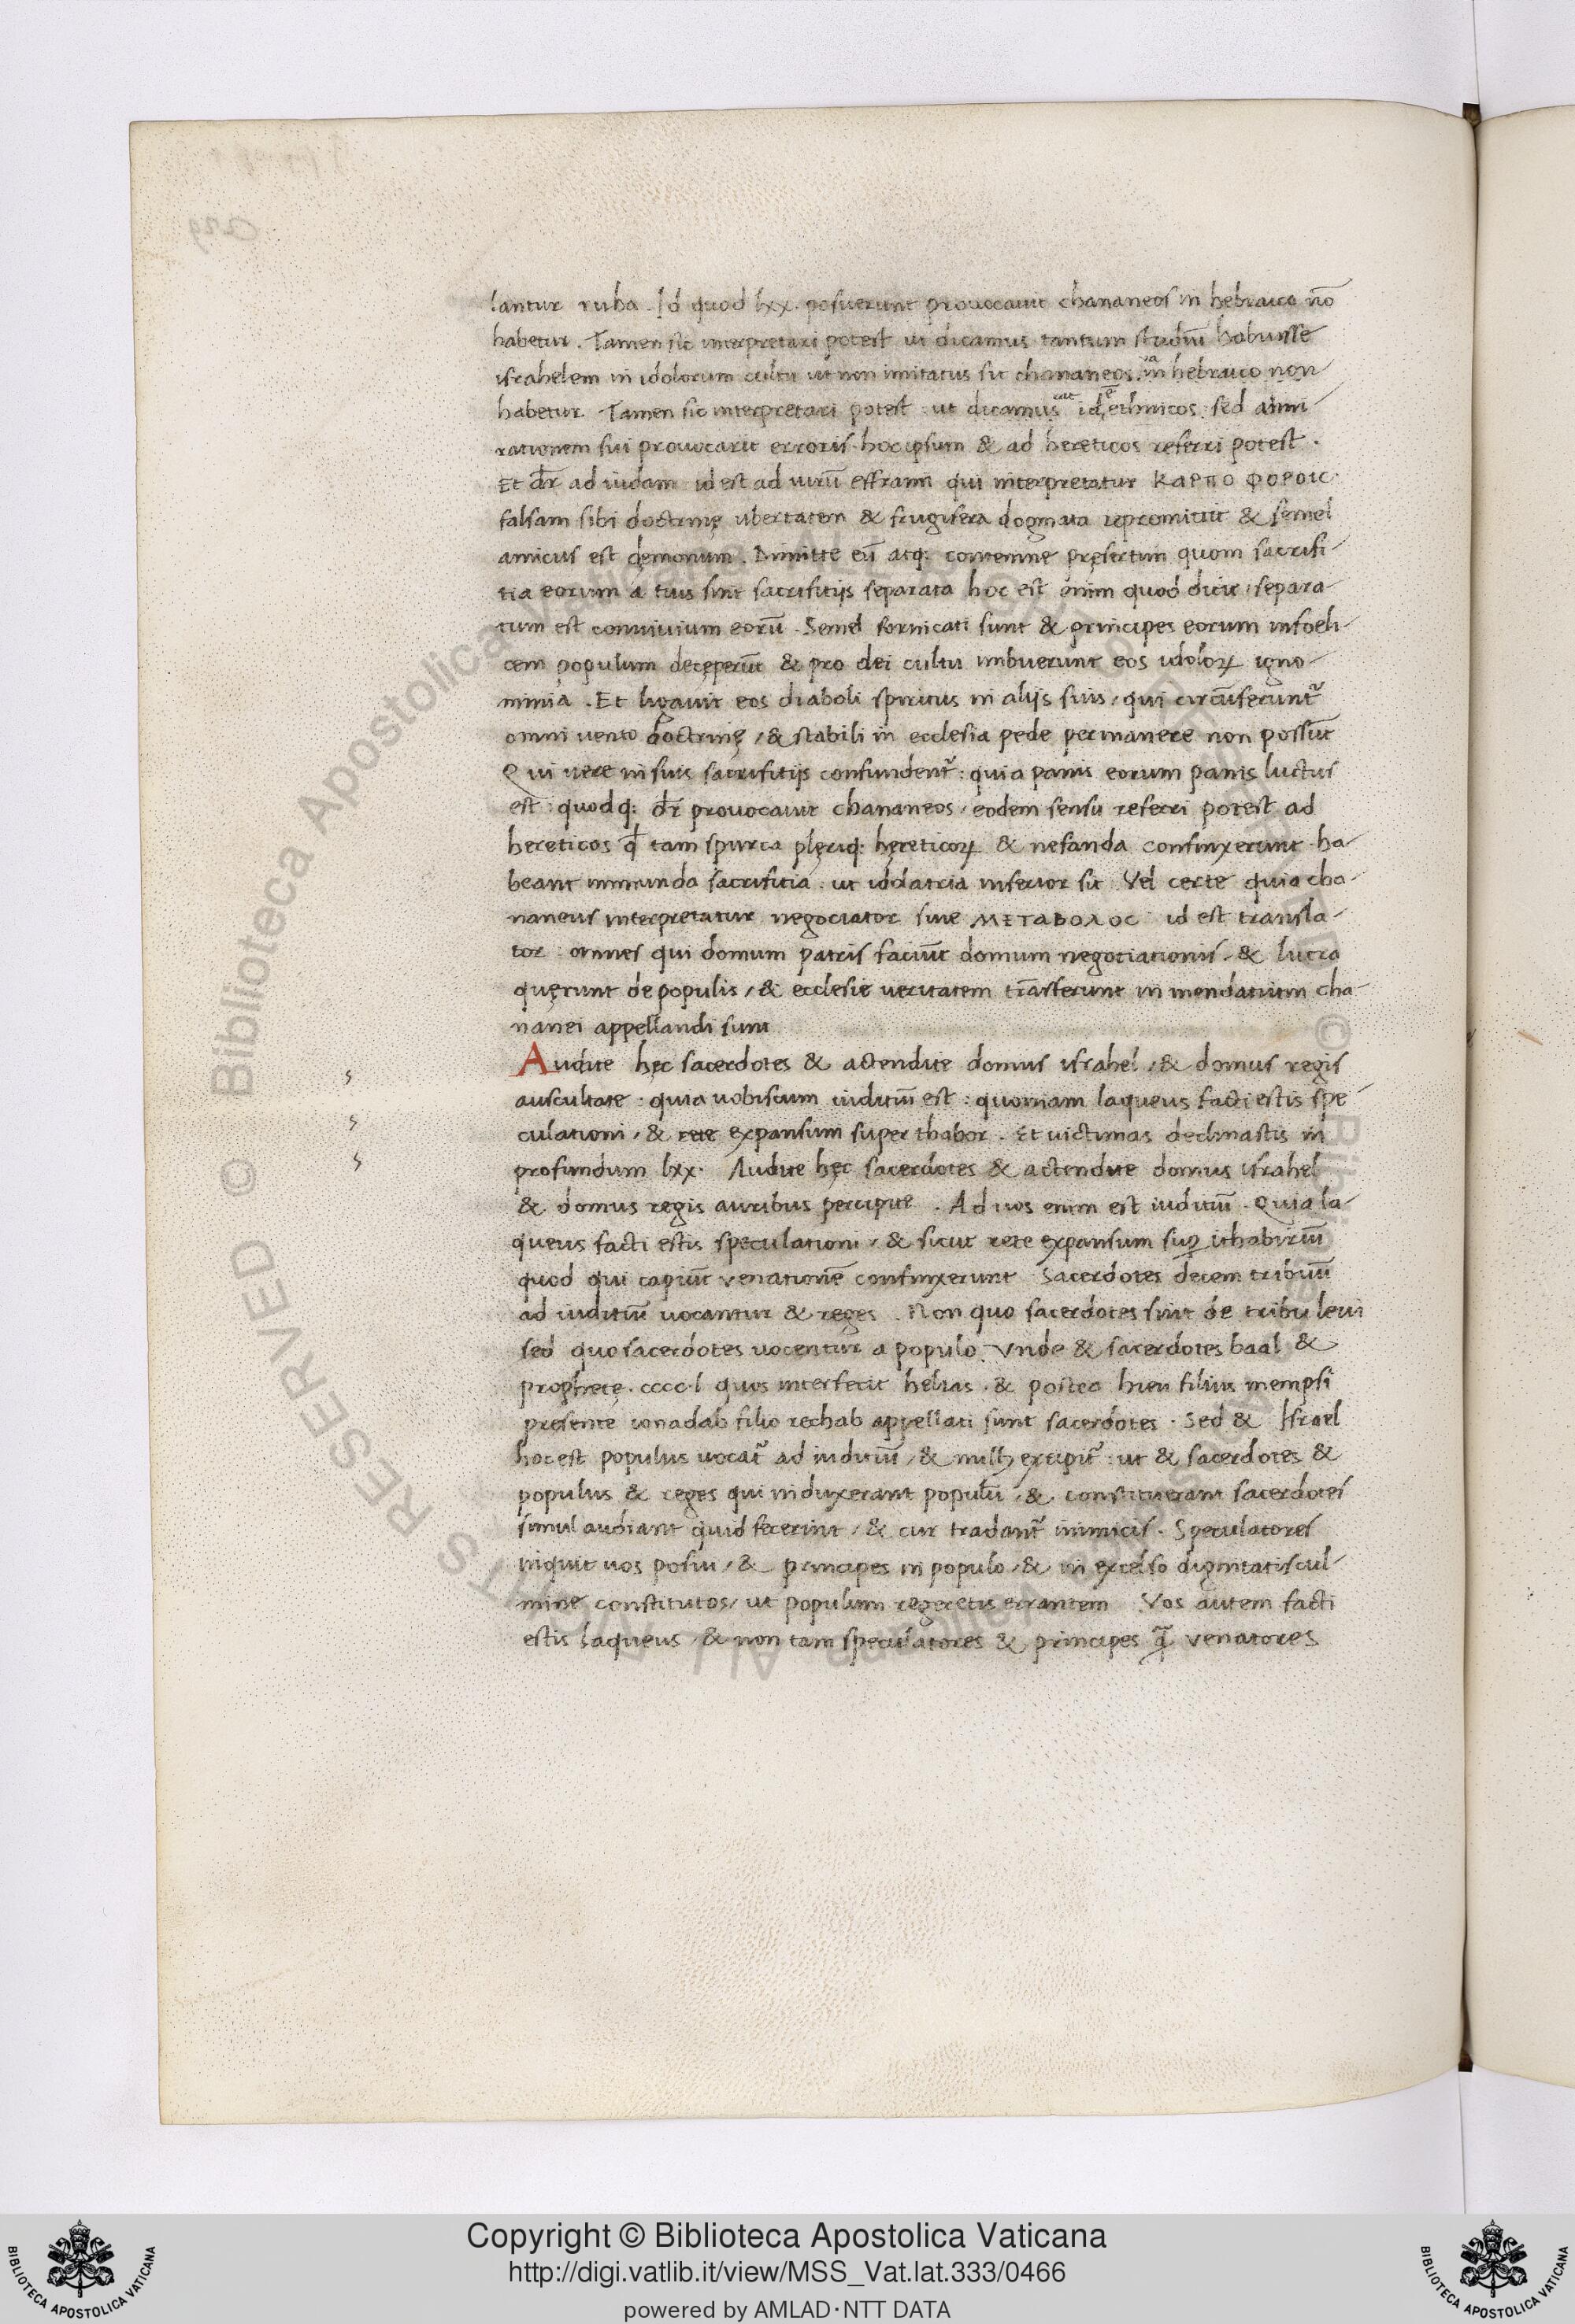 lantur ruha. Id quod lxx. posuerunt prouocauit chananeos in hebraico nō
habetur. Tamen sic interpretari potest ut dicamus tantum studiū habuisse
israhelem in idolorum cultu ut non imitatus sit chananeos. in hebraico non
habetur. Tamen sic interpretari potest ut dicamus id ethnicos. sed
rationem sui prouocarit erroris. hoc ipsum & ad hereticos referri potest.
Et dr̄ ad iudam id est ad uirū effraim qui interpretatur ΚΑΡΠΟ ΦΟΡΟΙC.
falsam sibi doctrinę ubertatem & frugifera dogmata repromittit & semel
amicus est dęmonum. Dimitte eū atq: contemne pręsertim quom sacrifi-
tia eorum a tuis sint sacrifitijs separata hoc est enim quod dicit: separa-
tum est conuiuium eorū. Semel fornicati sunt & principes eorum infoeli-
cem populum decęperūt & pro dei cultu imbuerunt eos idoloꝝ igno-
minia. Et ligauit eos diaboli spiritus in alijs suis, qui circūferunt᷑
omni uento doctrinę, & stabili in ecclesia pede permanere non possūt
Qui uere in suis sacrifitijs confundent᷑: quia panis eorum panis luctus
est: quodq: dr̄ prouocauit chananeos, eodem sensu referri potest ad
hereticos qđ tam spurca plęriq: hęreticoꝝ & nefanda confinxerunt ha-
beant immunda sacrifitia. ut idolatria inferior sit. Vel certe quia cha-
naneus interpretatur negociator siue ΜΕΤΑΒΟΛΟC id est transla-
tor: omnes qui domum patris faciūt domum negotiationis, & lucra
quęrunt de populis, & ecclesie ueritatem trāsferunt in mendatium cha-
nanei appellandi sunt
Audite hęc sacerdotes & actendite domus israhel, & domus regis
auscultate: quia uobiscum iuditiū est: quoniam laqueus facti estis spe
culationi, & rete expansum super thabor. Et uictimas declinastis in
profundum lxx. Audite hęc sacerdotes & actendite domus israhel
& domus regis auribus percipite. Ad uos enim est iuditiū. Quia la-
queus facti estis speculationi, & sicut rete expansum suꝑ ithabiriū
quod qui capiūt venationē confinxerunt Sacerdotes decem tribuū
ad iuditiū uocantur & reges. Non quo sacerdotes sint de tribu leui
sed quo sacerdotes uocentur a populo. Vnde & sacerdotes baal &
prophetę. cccc.l quos interfecit helias. & postea hieu filius mempsi
presente ionadab filio rechab appellati sunt sacerdotes. Sed & Israel
hoc est populus uocat᷑ ad iuditiū, & nullꝰ excipit᷑: ut & sacerdotes &
populus & reges qui induxerant populū, & constituerant sacerdotes
simul audiant quid fecerint, & cur tradant᷑ inimicis. Speculatores
inquit uos posui, & principes in populo, & in excelso dignitatis cul-
mine constitutos, ut populum regeretis errantem Vos autem facti
estis laqueus, & non tam speculatores & principes q̄ venatores
Copyright © Biblioteca Apostolica Vaticana
http://digi.vatlib.it/view/MSS_Vat.lat.333/0466
powered by AMLAD·NTT DATA